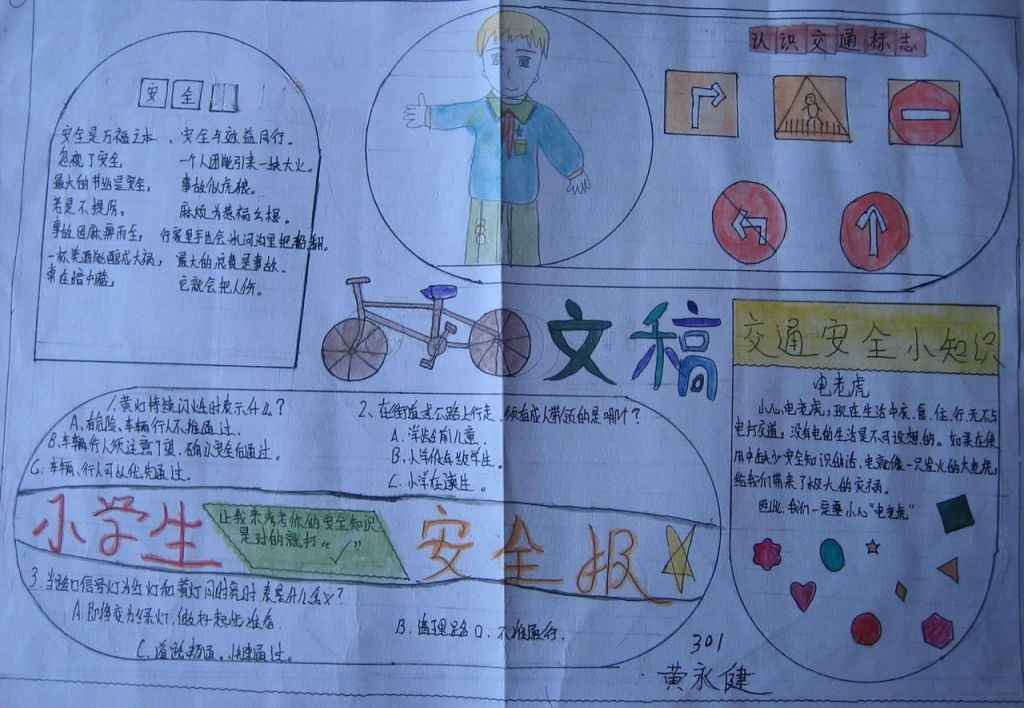 安全
安全是万福之本、安全与效益同行。
忽视了安全, 一个人因能引来一块大火。
最大的节约是安全, 事故似虎狼。
若是不提防, 麻烦为惹祸么根。
事故因麻痹而至, 行家里手也会水河沟里把船翻。
一杯美酒能酿成大祸, 最大的浪费是事故。
常在暗中藏, 它就会把人伤。
认识交通标志
文稿
交通安全小知识
电老虎
小心电老虎,现在生活中衣、食、住、行无不与
电打交道,没有电的生活是不可设想的。如果在使
用中缺少安全知识的话,电就像一只发火的大老虎,
给我们带来了极大的灾祸。
因此,我们一定要小心“电老虎”
1、黄灯持续闪烁时表示什么?
A、有危险、车辆行人不准通过。
B、车辆行人须注意了望,确认安全后通过。
C、车辆、行人可以优先通过。
2、在街道或公路上行走,须有成人带领的是哪个?
A、学龄前儿童。
B、小学低年级学生。
C、小学在读生。
小学生
让我来考考你的安全知识
是对的就打“✓”
安全报
3、当路口信号灯为红灯和黄灯同时亮时,表是什么含义?
A、即将变为绿灯,做好起步准备。
B、清理路口。不准通行。
C、道路畅通。快速通过。
301
黄永健